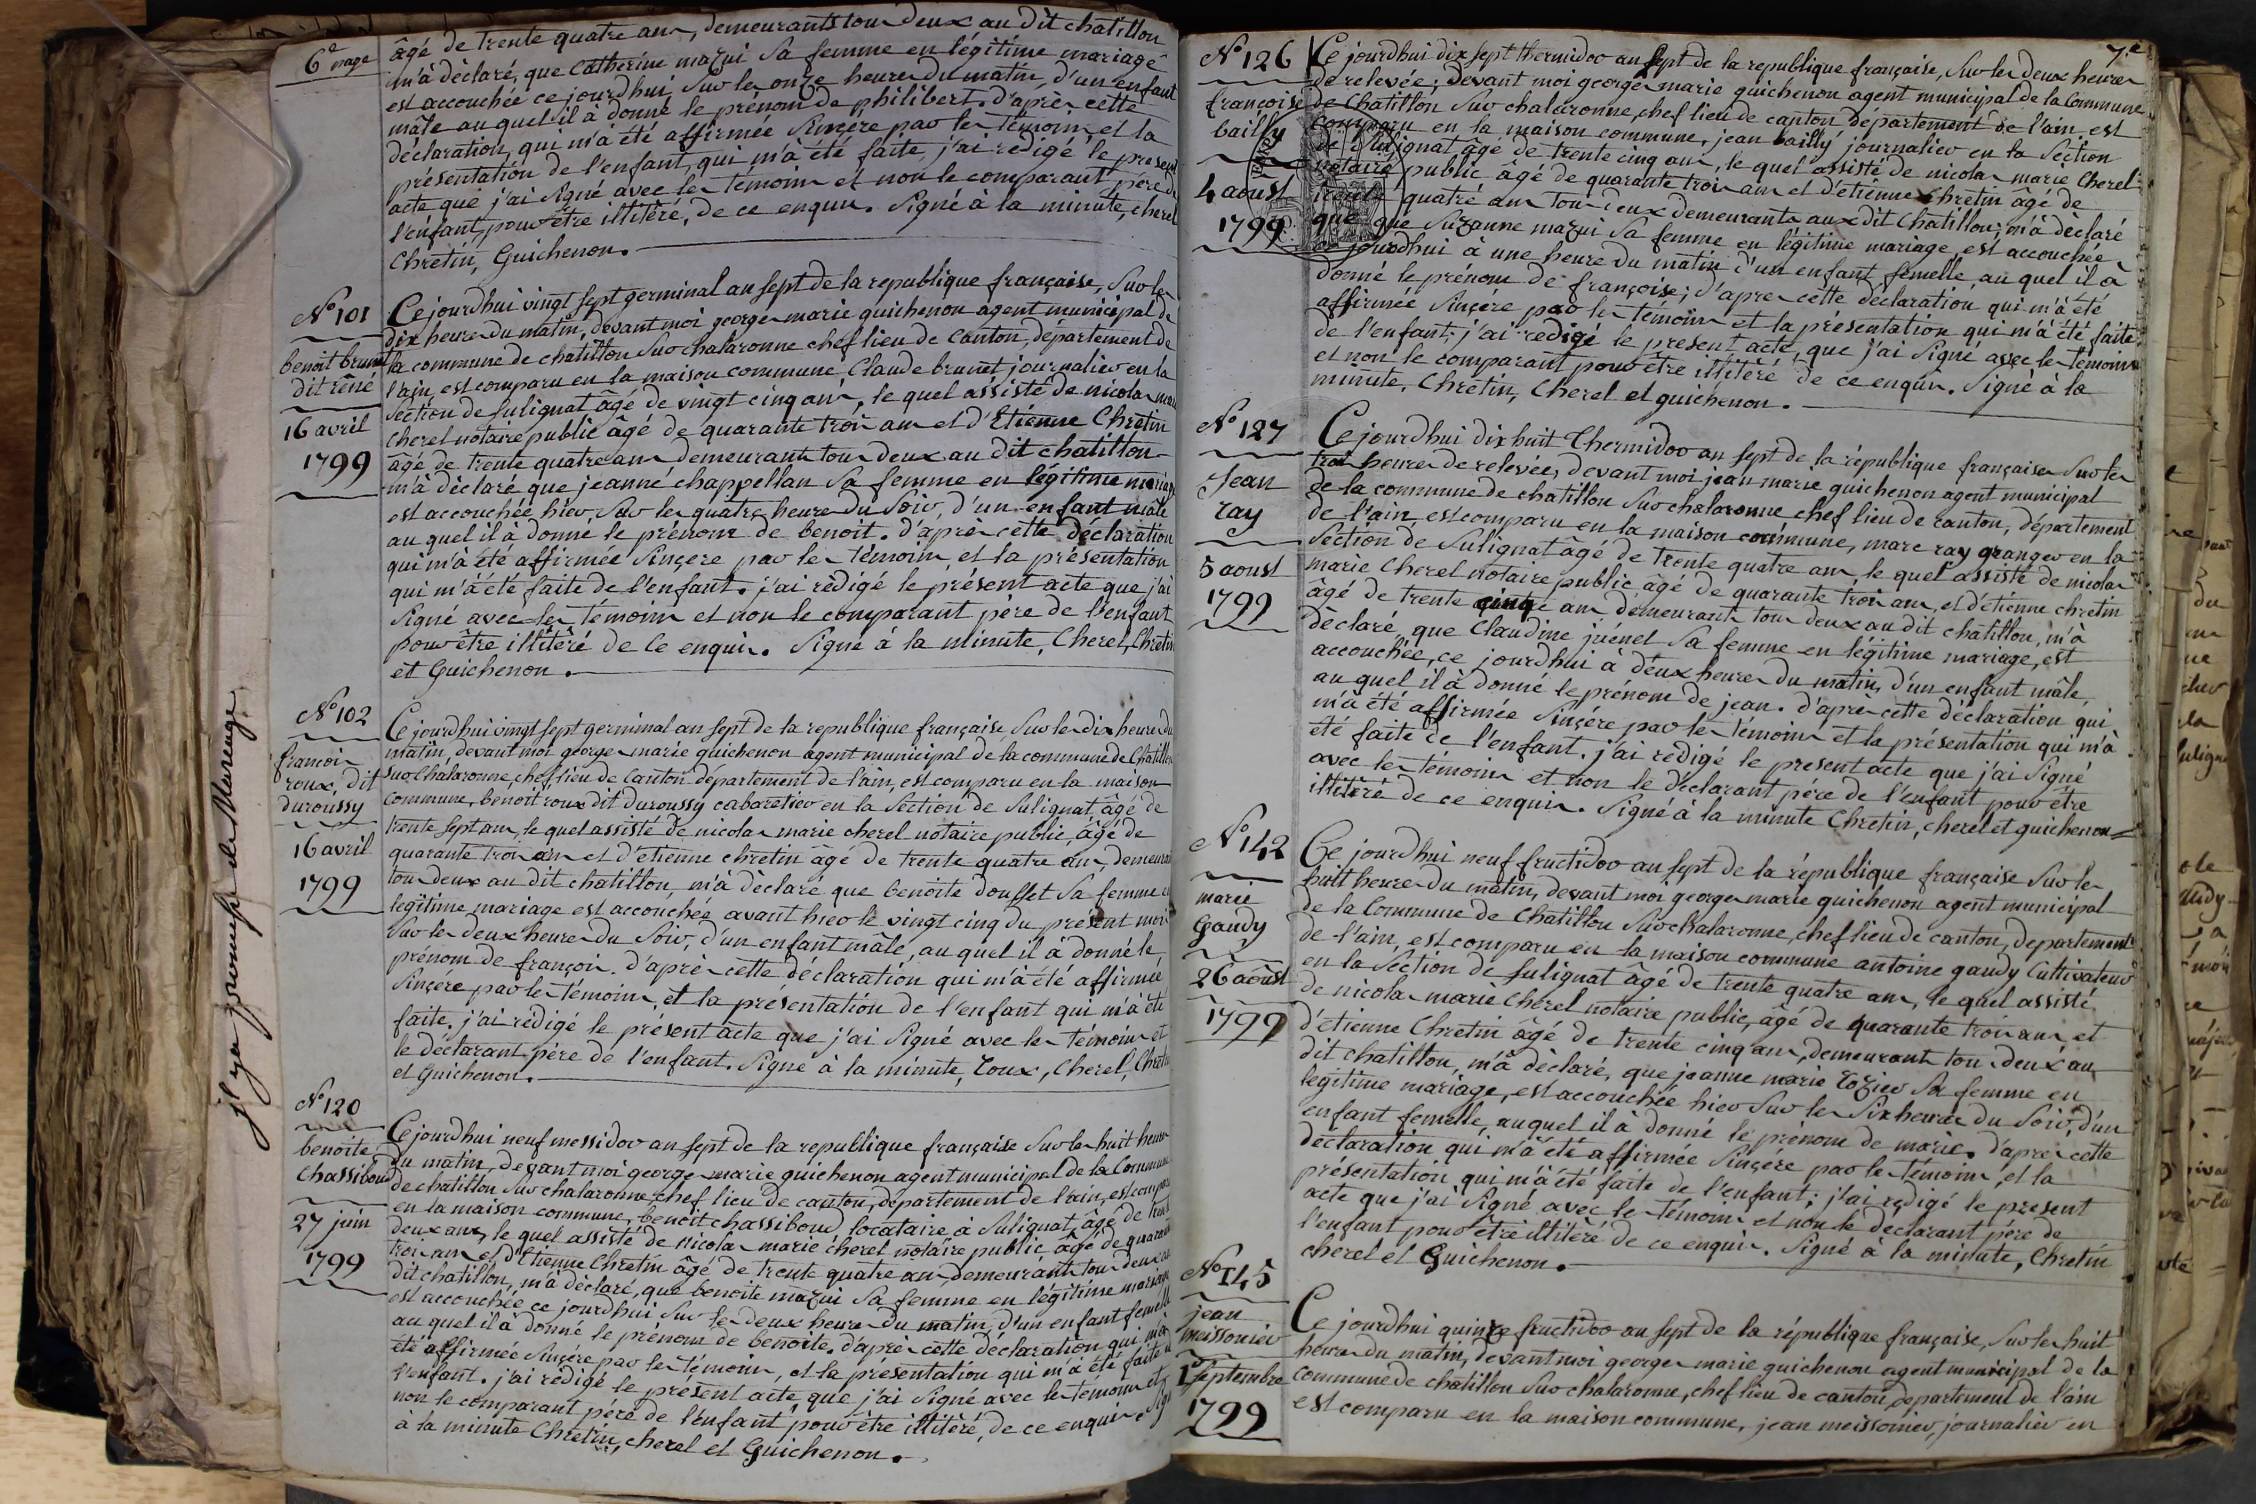 6e page
âgé de trente quatre ans, demeurants tous deux au dit chatillon
m'à dèclaré, que Catherine mazui Sa femme en légitime mariage
est accouchée ce jourdhui, Sur les onze heures du matin, d'un enfant
mâle au quel il à donné le prénom de philibert. d'après cette
déclaration, qui m'à été affirmée Sinçére par les témoins et la
présentation de l'enfant, qui m'à été faite, j'ai rédigé le present
acte que j'ai Signé avec les témoins et non le comparant père de
l'énfant, pour être illitéré, de ce enquis. Signé à la minute, cherel
Chrétin, Guichenon.
N° 101
benoit brunet
dit réné
16 avril
1799
Ce jourdhui vingt sept germinal an sept de la republique française, Sur les
dix heures du matin, devant moi george marie guichenon agent municipal de
la commune de chatillon Sur chalaronne chef lieu de Canton, département de
l'ain, est comparu en la maison commune Claude brunet journalier en la
Section de Sulignat âgé de vingt cinq ans, le quel assisté de nicolas marie
cherel notaire public âgé de quarante trois ans et d'Etienne Chretin
âgé de trente quatre ans demeurants tous deux au dit chatillon
m'à déclaré que jeanne chappellan Sa femme en légitime mariage
est accouchée hier, Sur les quatre heures du Soir, d'un enfant mâle
au quel il à donné le prénom de benoit. d'après cette déclaration
qui m'à été affirmée Sinçere par les témoins, et la présentation
qui m'à été faite de l'enfant. j'ai rédigé le présent acte que j'ai
Signé avec les témoins et non le comparant père de l'enfant
pour être illitéré de Ce enquis. Signé à la minute, Cherel, Chretin
et Guichenon.
N° 102
françois
roux, dit
duroussy
16 avril
1799
Ce jourdhui vingt sept germinal an sept de la republique française Sur les dix heures du
matin, devant moi george marie guichenon agent municipal de la commune de Chatillon
sur Chalaronne, chef lieu de Canton département de l'ain, est comparu en la maison
commune, benoit roux dit duroussy cabaretier en la Section de Sulignat, âgé de
trente sept ans, le quel assisté de nicolas marie cherel notaire public, âgé de
quarante trois ans et d'etienne chretin âgé de trente quatre ans, demeurants
tous deux au dit chatillon, m'à dèclaré que benoite dousset Sa femme en
legitime mariage est accouchée avant hier le vingt cinq du présent mois
Sur les deux heures du Soir, d'un enfant mâle, au quel il à donné le
prénom de françois. d'après cette déclaration qui m'à été affirmée
Sinçére par les témoins, et la présentation de l'enfant qui m'à été
faite. j'ai rédigé le présent acte que j'ai signé avec les témoins et
le déclarant père de l'enfant. Signé à la minute, Roux, Cherel, Chretin
et Guichenon.
N° 120
benoite
Chassiboud
27 juin
1799
Ce jourdhui neuf messidor an sept de la republique française Sur les huit heures
du matin, devant moi george marie guichenon agent municipal de la Commune
de chatillon Sur chalaronne chef lieu de canton, departement de l'ain, est comparu
en la maison commune, benoit chassiboud, locataire à Sulignat, âgé de trente
deux ans, le quel assisté de Nicolas marie cherel notaire public, âgé de quarante
trois ans et d'Etienne Chretin âgé de trente quatre ans demeurants tous deux au
dit chatillon, m'à dèclaré, que benoite mazui Sa femme en légitime mariage
est accouchée ce jourdhui Sur les deux heures du matin, d'un enfant femelle
au quel il à donné le prénom de benoite. d'après cette déclaration qui m'a
été affirmée Sinçére par les témoins, et la présentation qui m'à été faite de
l'enfant. j'ai rédigé le présent acte, que j'ai Signé avec les témoins et
non le comparant père de l'enfant, pour être illitéré, de ce enquis. Signé
à la minute Chretin, cherel et Guichenon.
jl ya promesse de Mareuge
7.e
N° 126
françoise
bailly
4 aoust
1799
Ce jourdhui dix sept thermidor an Sept de la republique française, Sur les deux heures
de relevée; devant moi george marie guichenon agent municipal de la Commune
de Chatillon Sur chalaronne, chef lieu de canton département de l'ain, est
comparu en la maison commune, jean bailly journalier en la Section
de Sulignat âgé de trente cinq ans, le quel assisté de nicolas marie Cherel
notaire public âgé de quarante trois ans et d'etienne chretin âgé de
trente quatre ans tous deux demeurants aux dit Chatillon, m'à déclaré
que Suzanne mazui Sa femme en légitime mariage, est accouchée
ce jourdhui à une heure du matin d'un enfant femelle, au quel il à
donné le prénom de françoise; d'apres cette déclaration qui m'à été
affirmée Sinçére par les témoins et la présentation qui m'à été faite
de l'enfant. j'ai redigé le present acte, que j'ai Signé avec les témoins
et non le comparant pour être illitéré de ce enquis. Signé à la
minute, Chretin, Cherel et guichenon.
N° 127
Jean
ray
5 aoust
1799
Ce jourdhui dix huit Thermidor an sept de la république française Sur les
trois heures de relevée, devant moi jean marie guichenon agent municipal
de la commune de chatillon Sur chalaronne chef lieu de canton, département
de l'ain, est comparu en la maison commune, marc ray granger en la
Section de Sulignat âgé de trente quatre ans, le quel assisté de nicolas
marie Cherel notaire public, âgé de quarante trois ans, et d'étienne chretin
âgé de trente cinq ans demeurants tous deux au dit chatillon, m'à
dèclaré, que Claudine juénel Sa femme en légitime mariage, est
accouchée, ce jourdhui à deux heures du matin, d'un enfant mâle,
au quel il à donné le prénom de jean. d'après cette déclaration qui
m'à été affirmée Sinçére par les témoins et la présentation qui m'à
été faite de l'enfant. j'ai rédigé le present acte que j'ai Signé
avec les témoins et non le déclarant père de l'enfant pour être
illitéré de ce enquis. Signé à la minute Chretin, cherel et guichenon
N° 142
marie
Gaudy
26 août
1799
Ce jourdhui neuf fructidor an sept de la république française Sur les
huit heures du matin, devant moi george marie guichenon agent municipal
de la Commune de Chatillon Sur chalaronne, chef lieu de canton, departement
de l'ain, est comparu en la maison commune antoine gaudy Cultivateur
en la Section de Sulignat âgé de trente quatre ans, le quel assisté
de nicolas marie Cherel notaire public, âgé de quarante trois ans, et
d'etienne Chretin agé de trente cinq ans, demeurants tous deux au
dit chatillon, m'à déclaré, que jeanne marie Rozier Sa femme en
legitime mariage, est accouchée hier Sur les Six heures du Soir, d'un
enfant femelle, au quel il à donné le prénom de marie. d'apres cette
dèclaration qui m'à été affirmée Sinçére par les témoins, et la
présentation qui m'à été faite de l'enfant; j'ai redigé le present
acte que j'ai Signé avec les témoins et non le declarant père de
l'enfant pour être illitéré de ce enquis. Signé à la minute, Chretin
cherel et Guichenon.
N° 145
jean
moissonier
1er septembre
1799
Ce jourdhui quinze fructidor an sept de la république française, Sur les huit
heures du matin, devant moi george marie guichenon agent municipal de la
commune de chatillon Sur chalaronne, chef lieu de canton departement de l'ain
est comparu en la maison commune, jean meissonier, journalier en